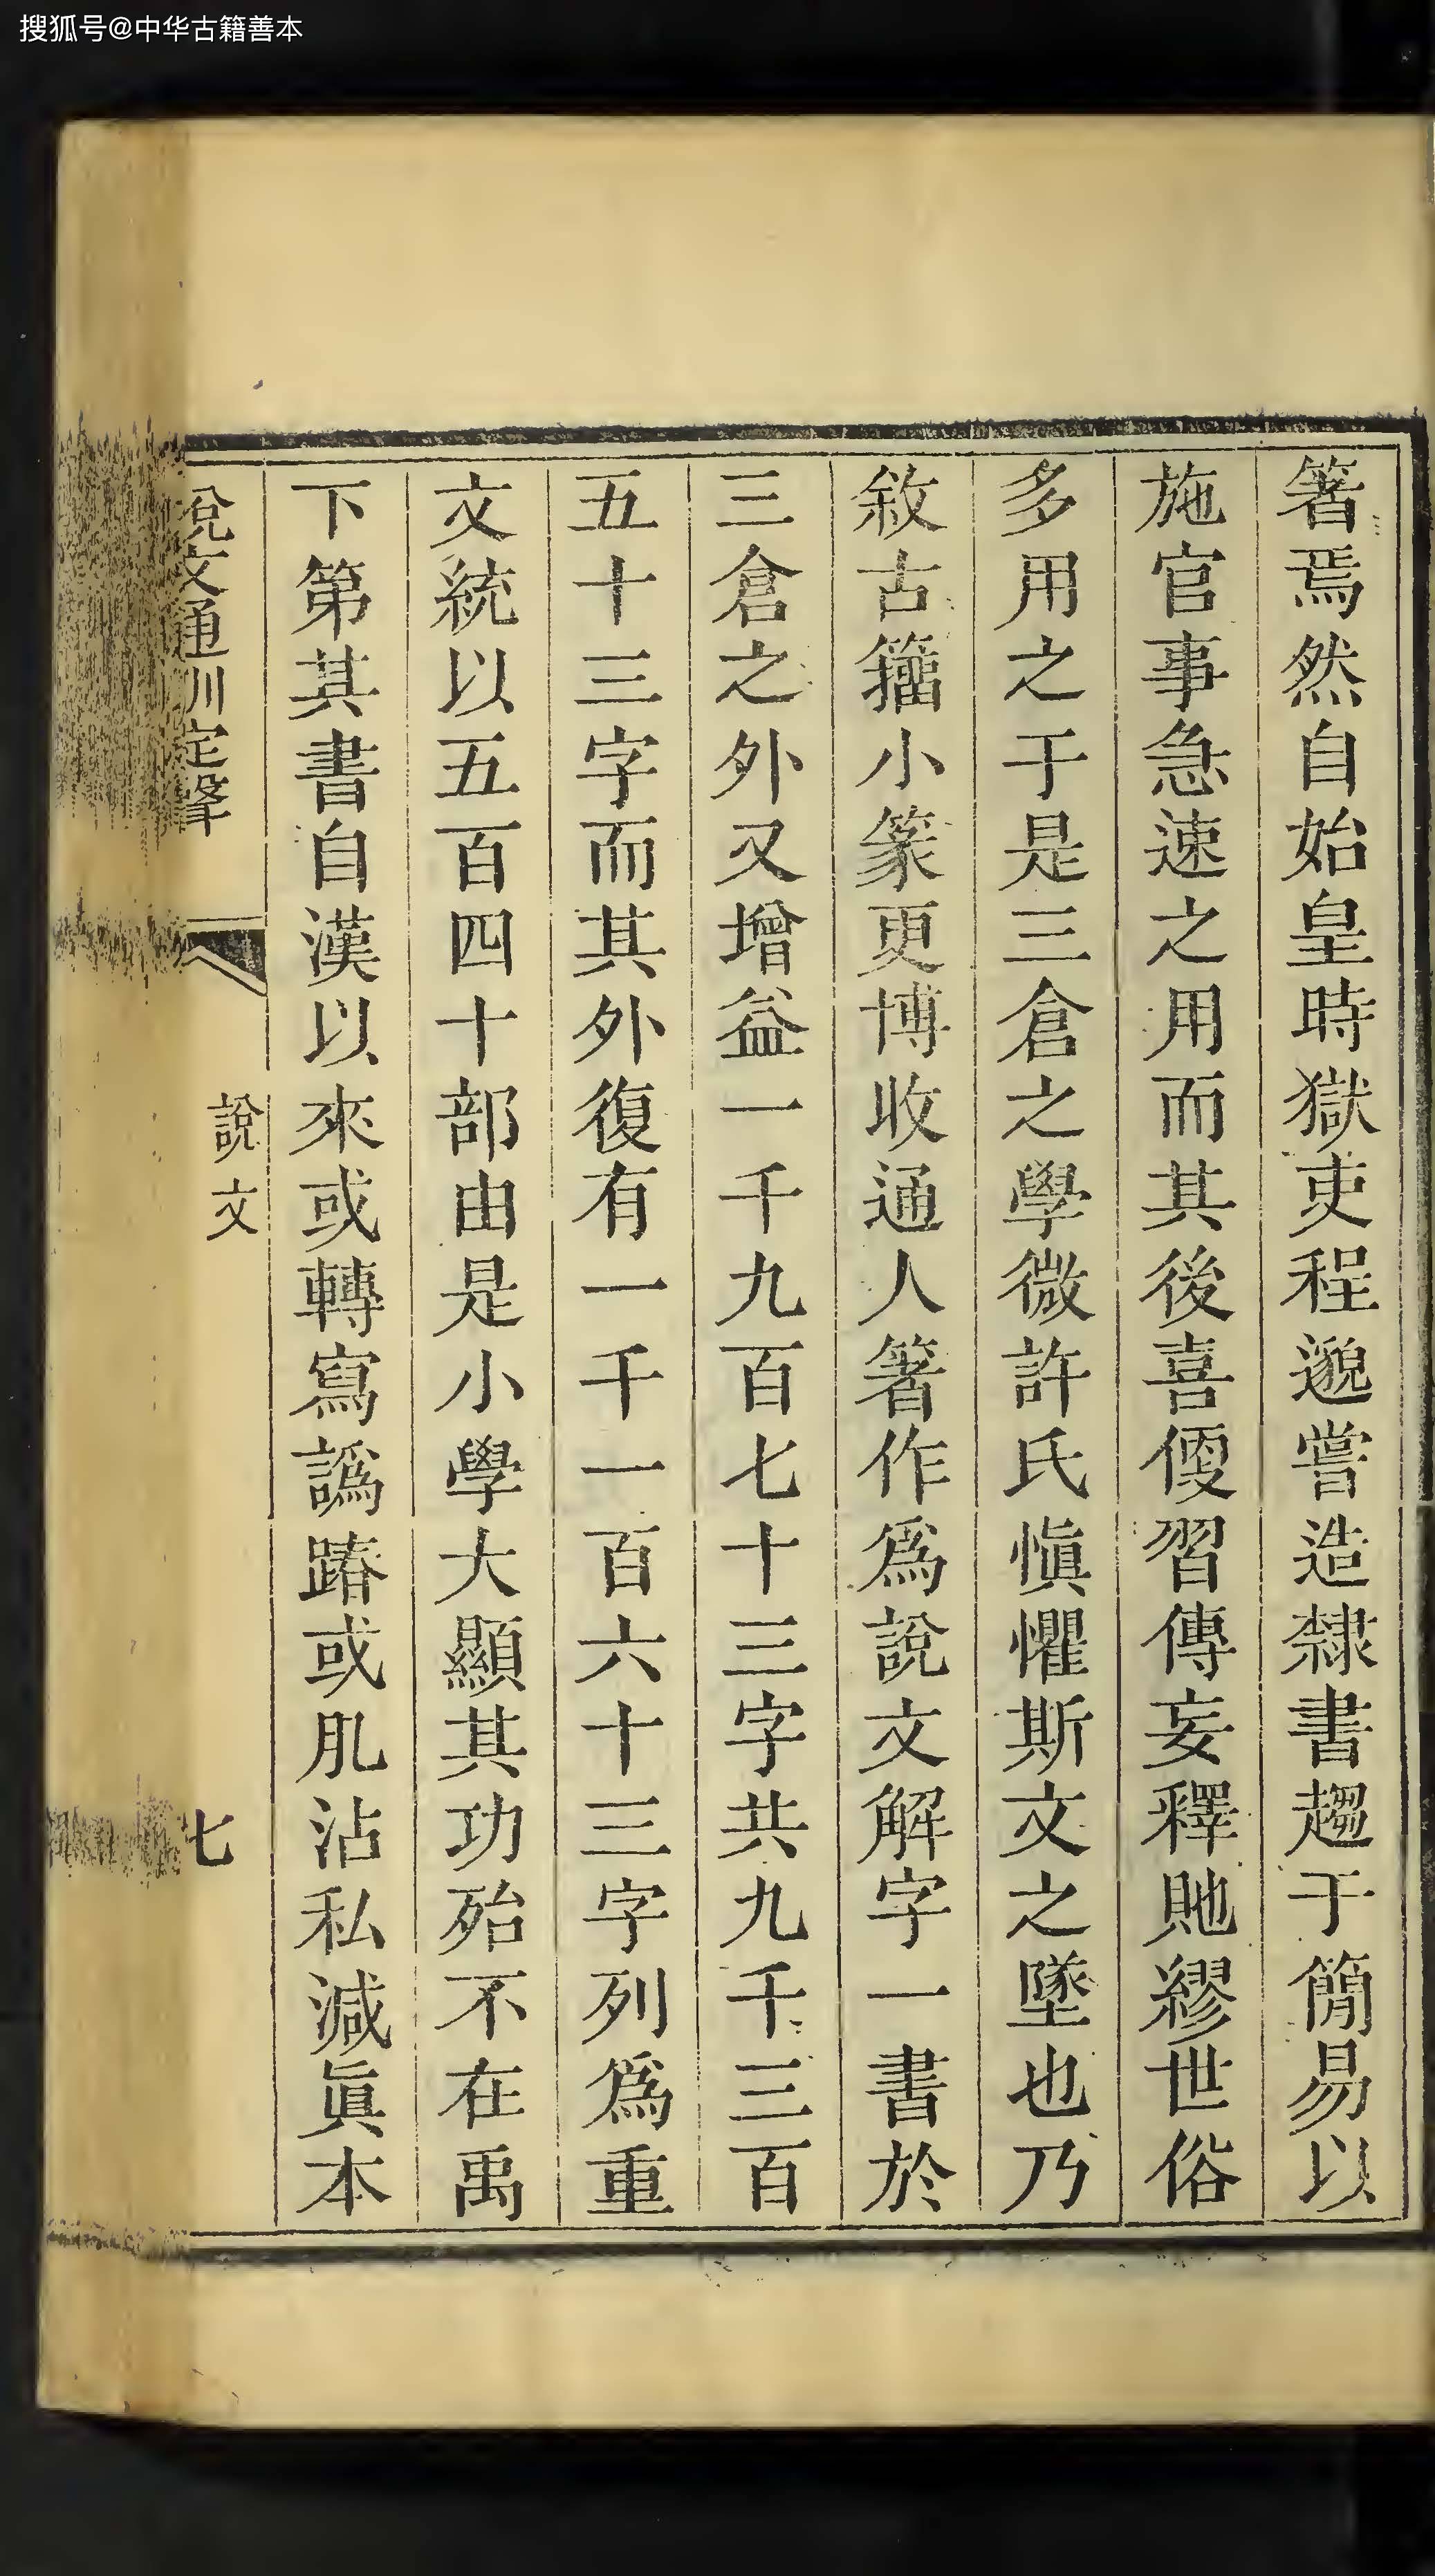 搜狐号@中华古籍善本
箸焉然自始皇時獄吏程邈嘗造隸書趨于簡易以
施官事急速之用而其後喜㑮習傳妄釋貤繆世俗
多用之于是三倉之學微許氏愼懼斯文之墜也乃
敘古籒小篆更博收通人箸作爲說文解字一書於
三倉之外又增益一千九百七十三字共九千三百
五十三字而其外復有一千一百六十三字列爲重
文統以五百四十部由是小學大顯其功殆不在禹
下第其書自漢以來或轉寫譌踳或肊沾私減眞本
說文通訓定聲
說文
七